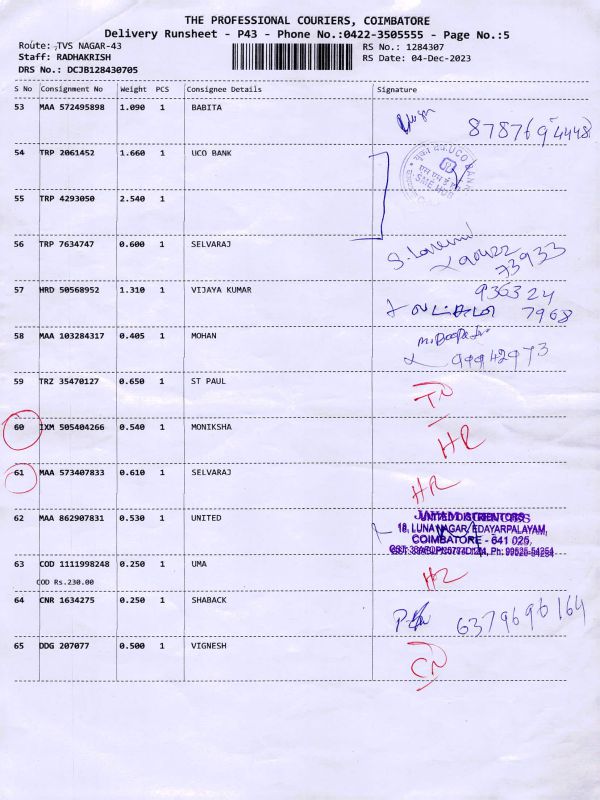 THE PROFESSIONAL COURIERS, COIMBATORE
Delivery Runsheet - P43 - Phone No.:0422-3505555 - Page No.:5
Route: TVS NAGAR-43
Staff: RADHAKRISH
DRS No.: DCJB128430705
RS No.: 1284307
RS Date: 04-Dec-2023
S No Consignment No Weight PCS Consignee Details Signature
53 MAA 572495898 1.090 1 BABITA
8787694448
54 TRP 2061452 1.660 1 UCO BANK
UCO BANK
55 TRP 4293050 2.540 1
56 TRP 7634747 0.600 1 SELVARAJ
73933
57 HRD 50568952 1.310 1 VIJAYA KUMAR
936324
7968
58 MAA 103284317 0.405 1 MOHAN
99942973
59 TRZ 35470127 0.650 1 ST PAUL
60 IXM 505404266 0.540 1 MONIKSHA
HR
61 MAA 573407833 0.610 1 SELVARAJ
HR
62 MAA 862907831 0.530 1 UNITED
18, LUNA NAGAR, EDAYARPALAYAM,
COIMBATORE - 641 025.
63 COD 1111998248 0.250 1 UMA
COD Rs.230.00
64 CNR 1634275 0.250 1 SHABACK
6379696164
65 DDG 207077 0.500 1 VIGNESH
CN